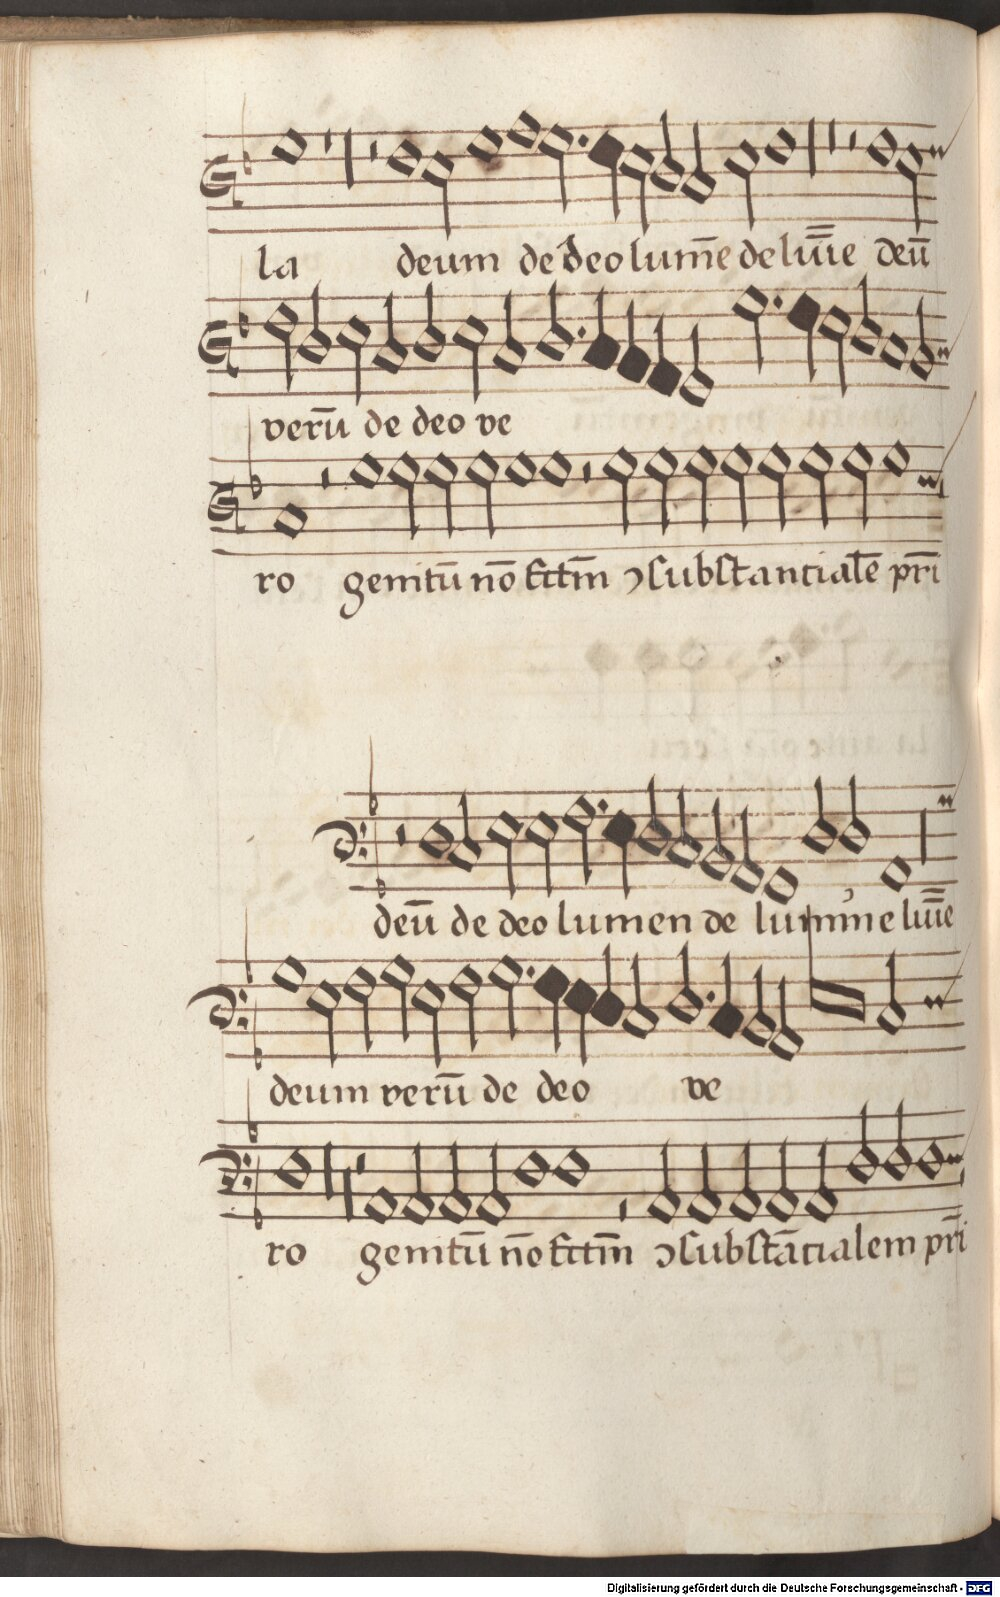 la deum de deo lum̄e de lūīe deū
verū de deo ve
ro genitū nō fctm̄ ↄsubstantialē pr̄i
deū de deo lumen de lumine lūīe
deum verū de deo ve
ro genitū n̄o fctm̄ ↄsubstātialem pr̄i
Digitalisierung gefördert durch die Deutsche Forschungsgemeinschaft - DFG